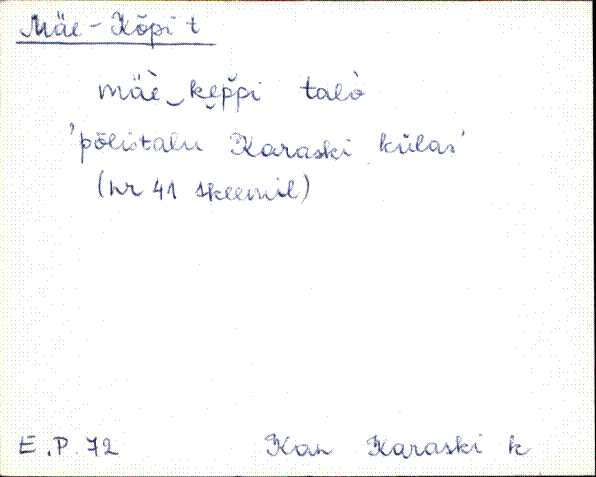 Mäe-Kõpi t
mäè‿ke̮p̆pi talò
'põlistalu Karaski külas'
(nr 41 skeemil)
E.P. 72 Kan Karaski k